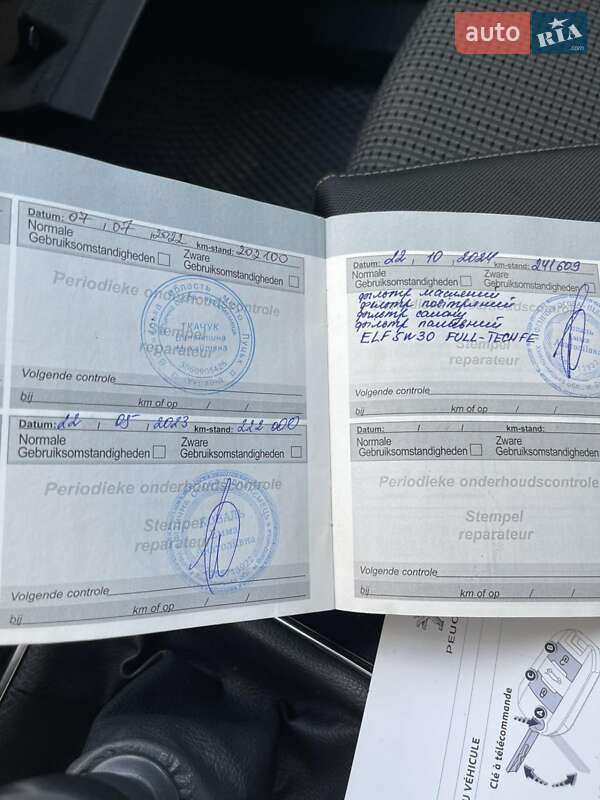 auto RIA.com
Datum: 07 , 07 , 2022 km-stand: 202100
Normale Gebruiksomstandigheden
Zware Gebruiksomstandigheden
Periodieke onderhoudscontrole
область
Луцьк
ТКАЧУК
Stempel
reparateur
Україна
Volgende controle
bij km of op / /
Datum: 22 , 05 , 2023 km-stand: 222 000
Normale Gebruiksomstandigheden
Zware Gebruiksomstandigheden
Periodieke onderhoudscontrole
Stempel
reparateur
КОВАЛЬ
Volgende controle
bij km of op / /
Datum: 22 , 10 , 2024 km-stand: 241609
Normale Gebruiksomstandigheden
Zware Gebruiksomstandigheden
фільтр масляний
фільтр повітряний
фільтр салону
фільтр паливний
ELF 5W30 FULL-TECH FE
Stempel
reparateur
Volgende controle
bij km of op / /
Datum: / / km-stand:
Normale Gebruiksomstandigheden
Zware Gebruiksomstandigheden
Periodieke onderhoudscontrole
Stempel
reparateur
Volgende controle
bij km of op / /
PEUG
U VÉHICULE
Clé à télécommande
A
B
C